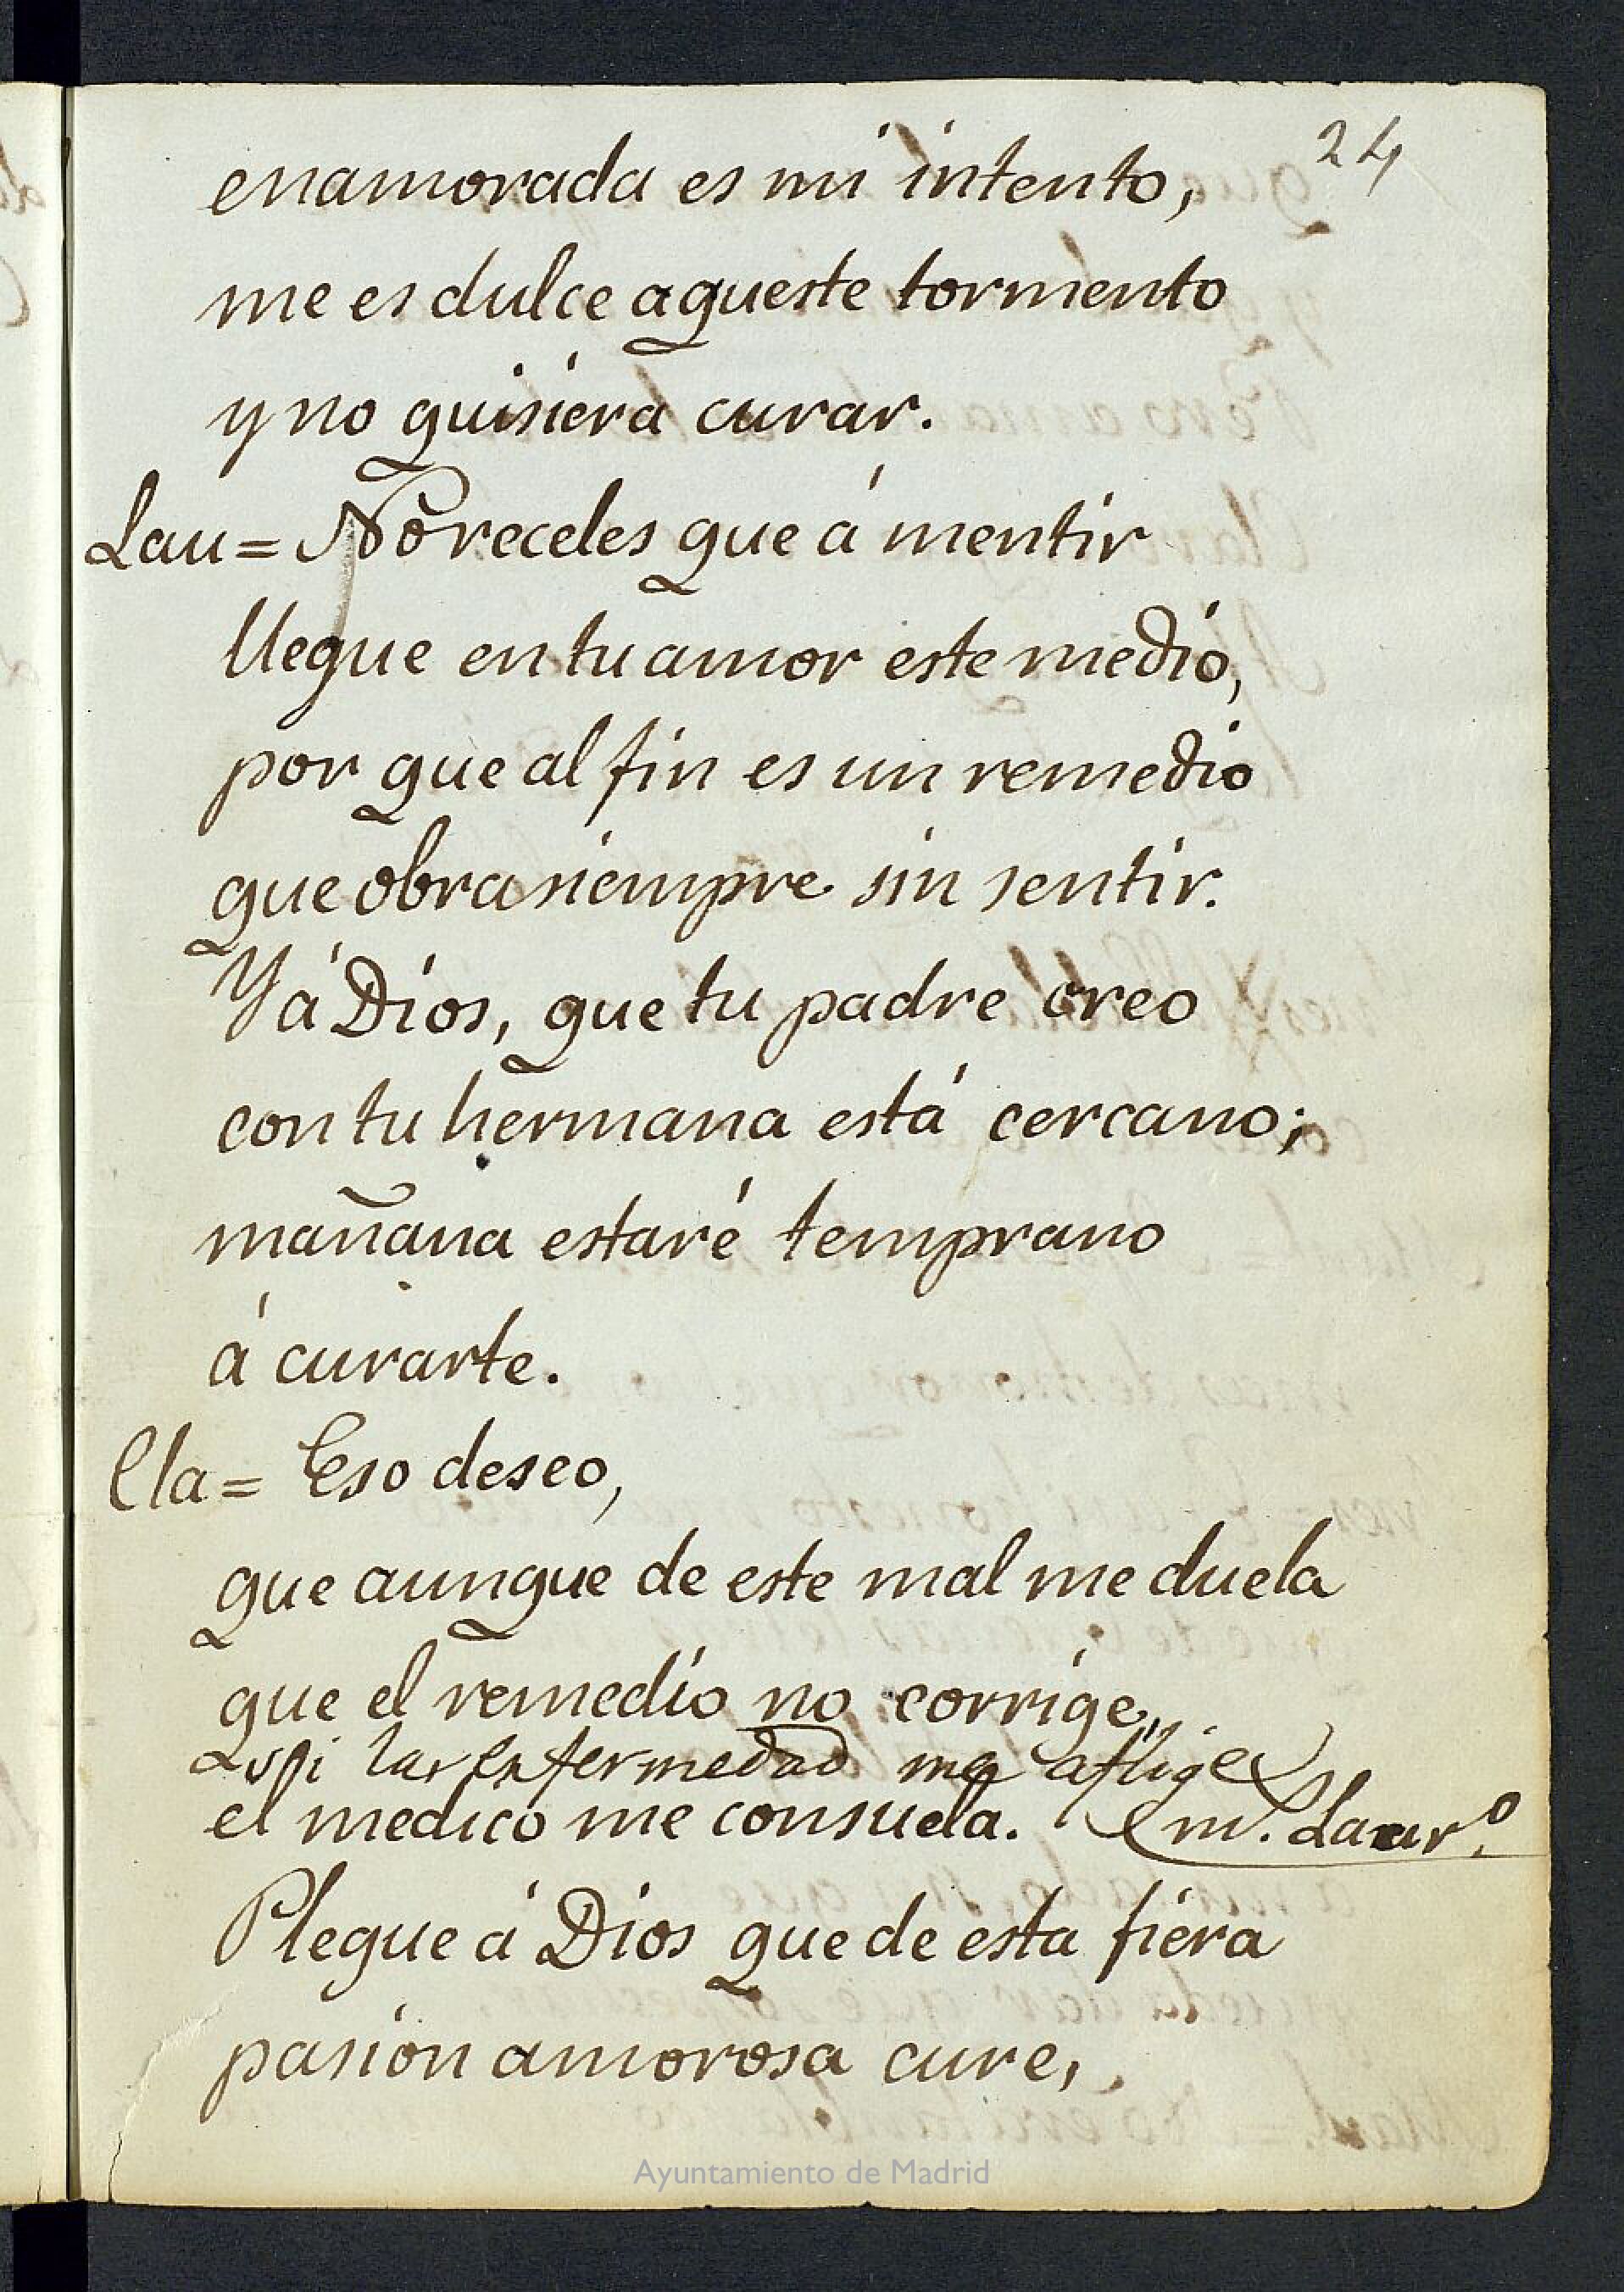 24
enamorada es mi intento,
me es dulce aqueste tormento
y no quisiera curar.
Lau = No receles que á mentir
llegue en tu amor este medio,
por que al fin es un remedio
que obra siempre sin sentir.
Y á Dios, que tu padre creo
con tu hermana está cercano;
mañana estaré temprano
á curarte.
Cla = Eso deseo,
que aunque de este mal me duela
que el remedio no corrige,
si la enfermedad me aflige
el medico me consuela. m. Laur.º
Plegue á Dios que de esta fiera
pasion amorosa cure,
Ayuntamiento de Madrid